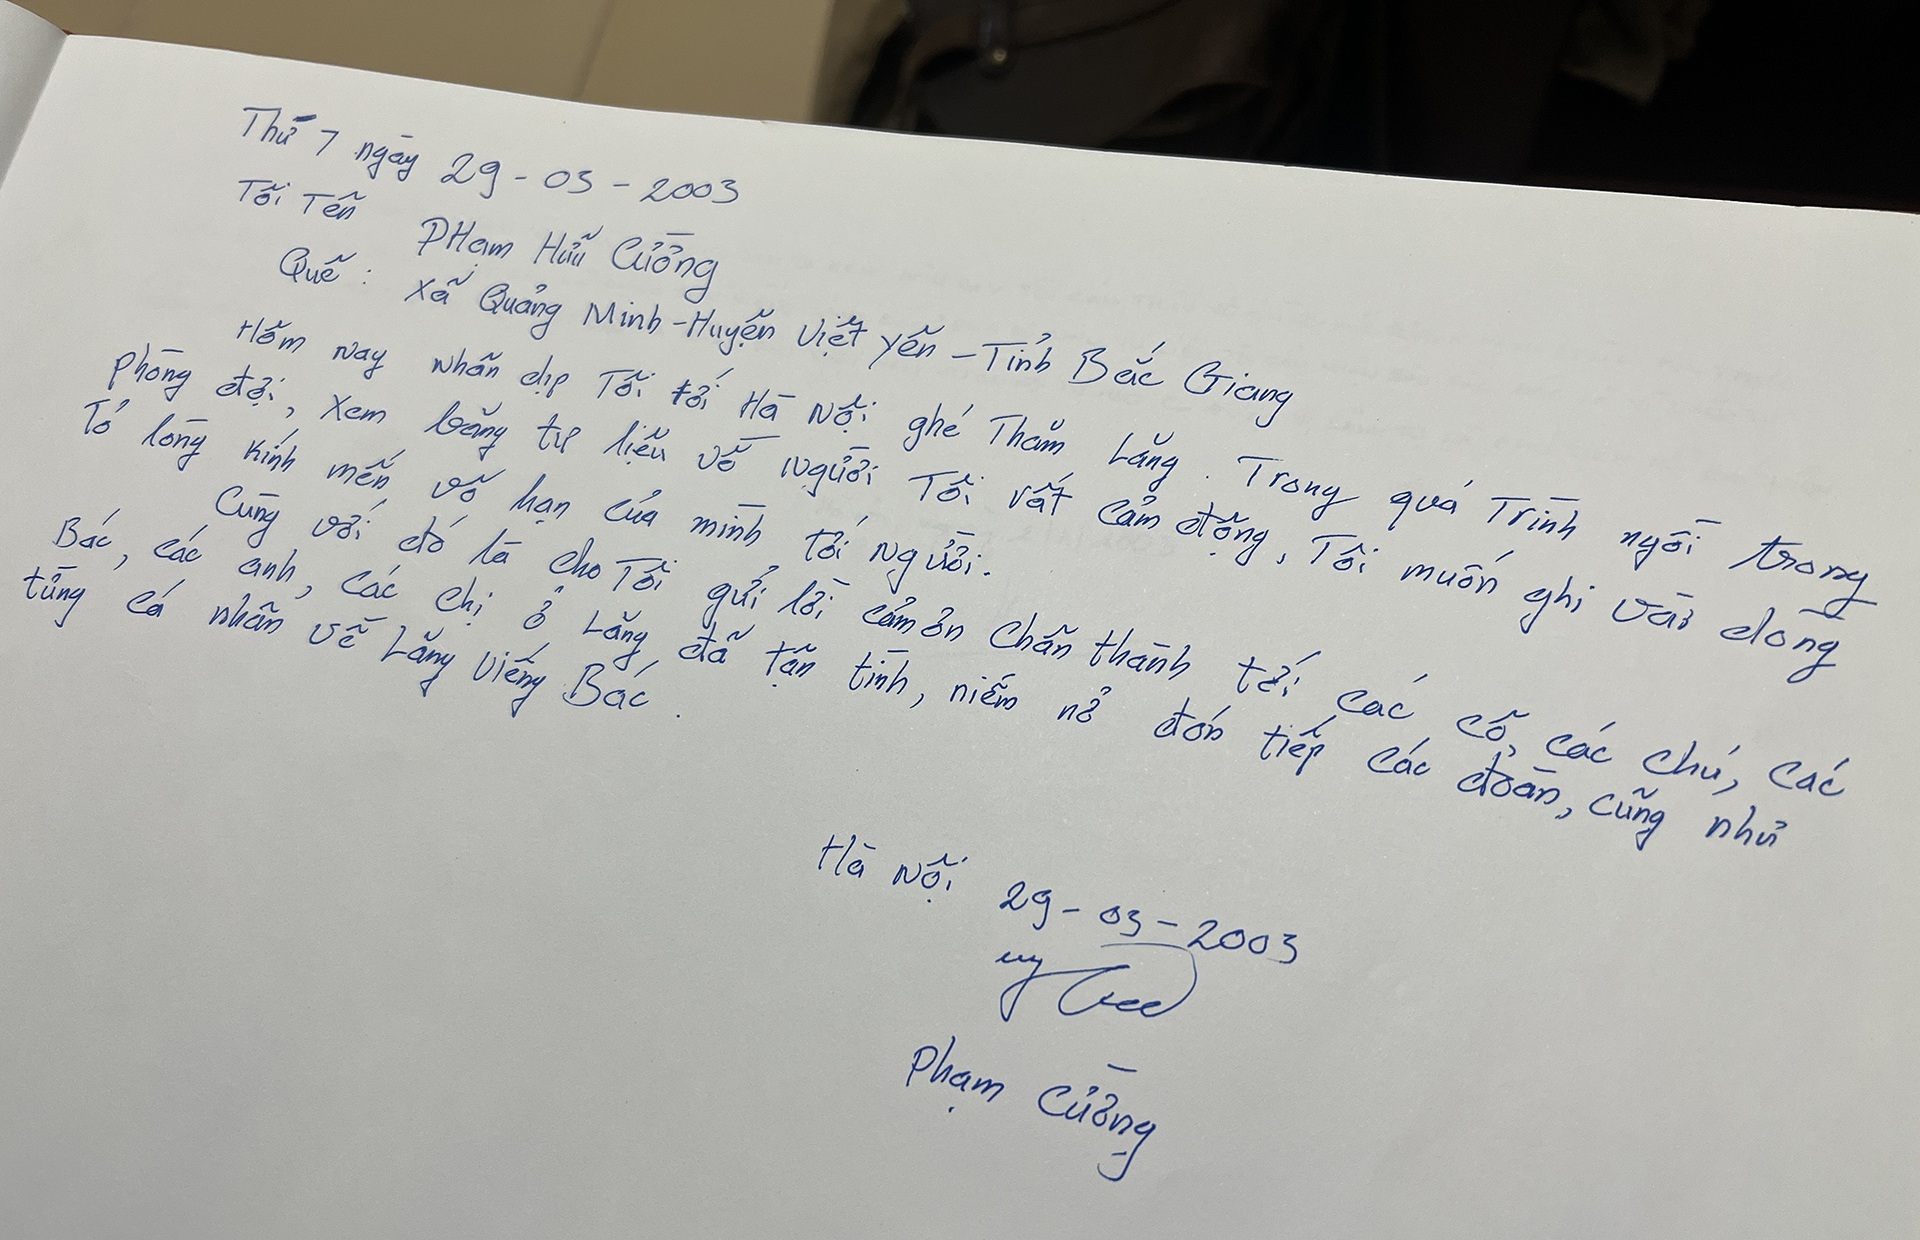 Thứ 7 ngày 29-03-2003
Tôi Tên Phạm Hữu Cường
Quê: xã Quảng Minh-Huyện Việt yên-Tỉnh Bắc Giang
Hôm nay nhân dịp Tôi tới Hà Nội ghé Thăm Lăng. Trong quá Trình ngồi trong
phòng đợi, xem băng tư liệu về người Tôi rất cảm động, Tôi muốn ghi vài dòng
Tỏ lòng kính mến vô hạn của mình tới người.
Cùng với đó là cho Tôi gửi lời cảm ơn chân thành tới các cô, các chú, các
Bác, các anh, các chị ở Lăng đã tận tình, niềm nở đón tiếp các đoàn, cũng như
từng cá nhân về Lăng viếng Bác.
Hà Nội 29-03-2003
Phạm Cường